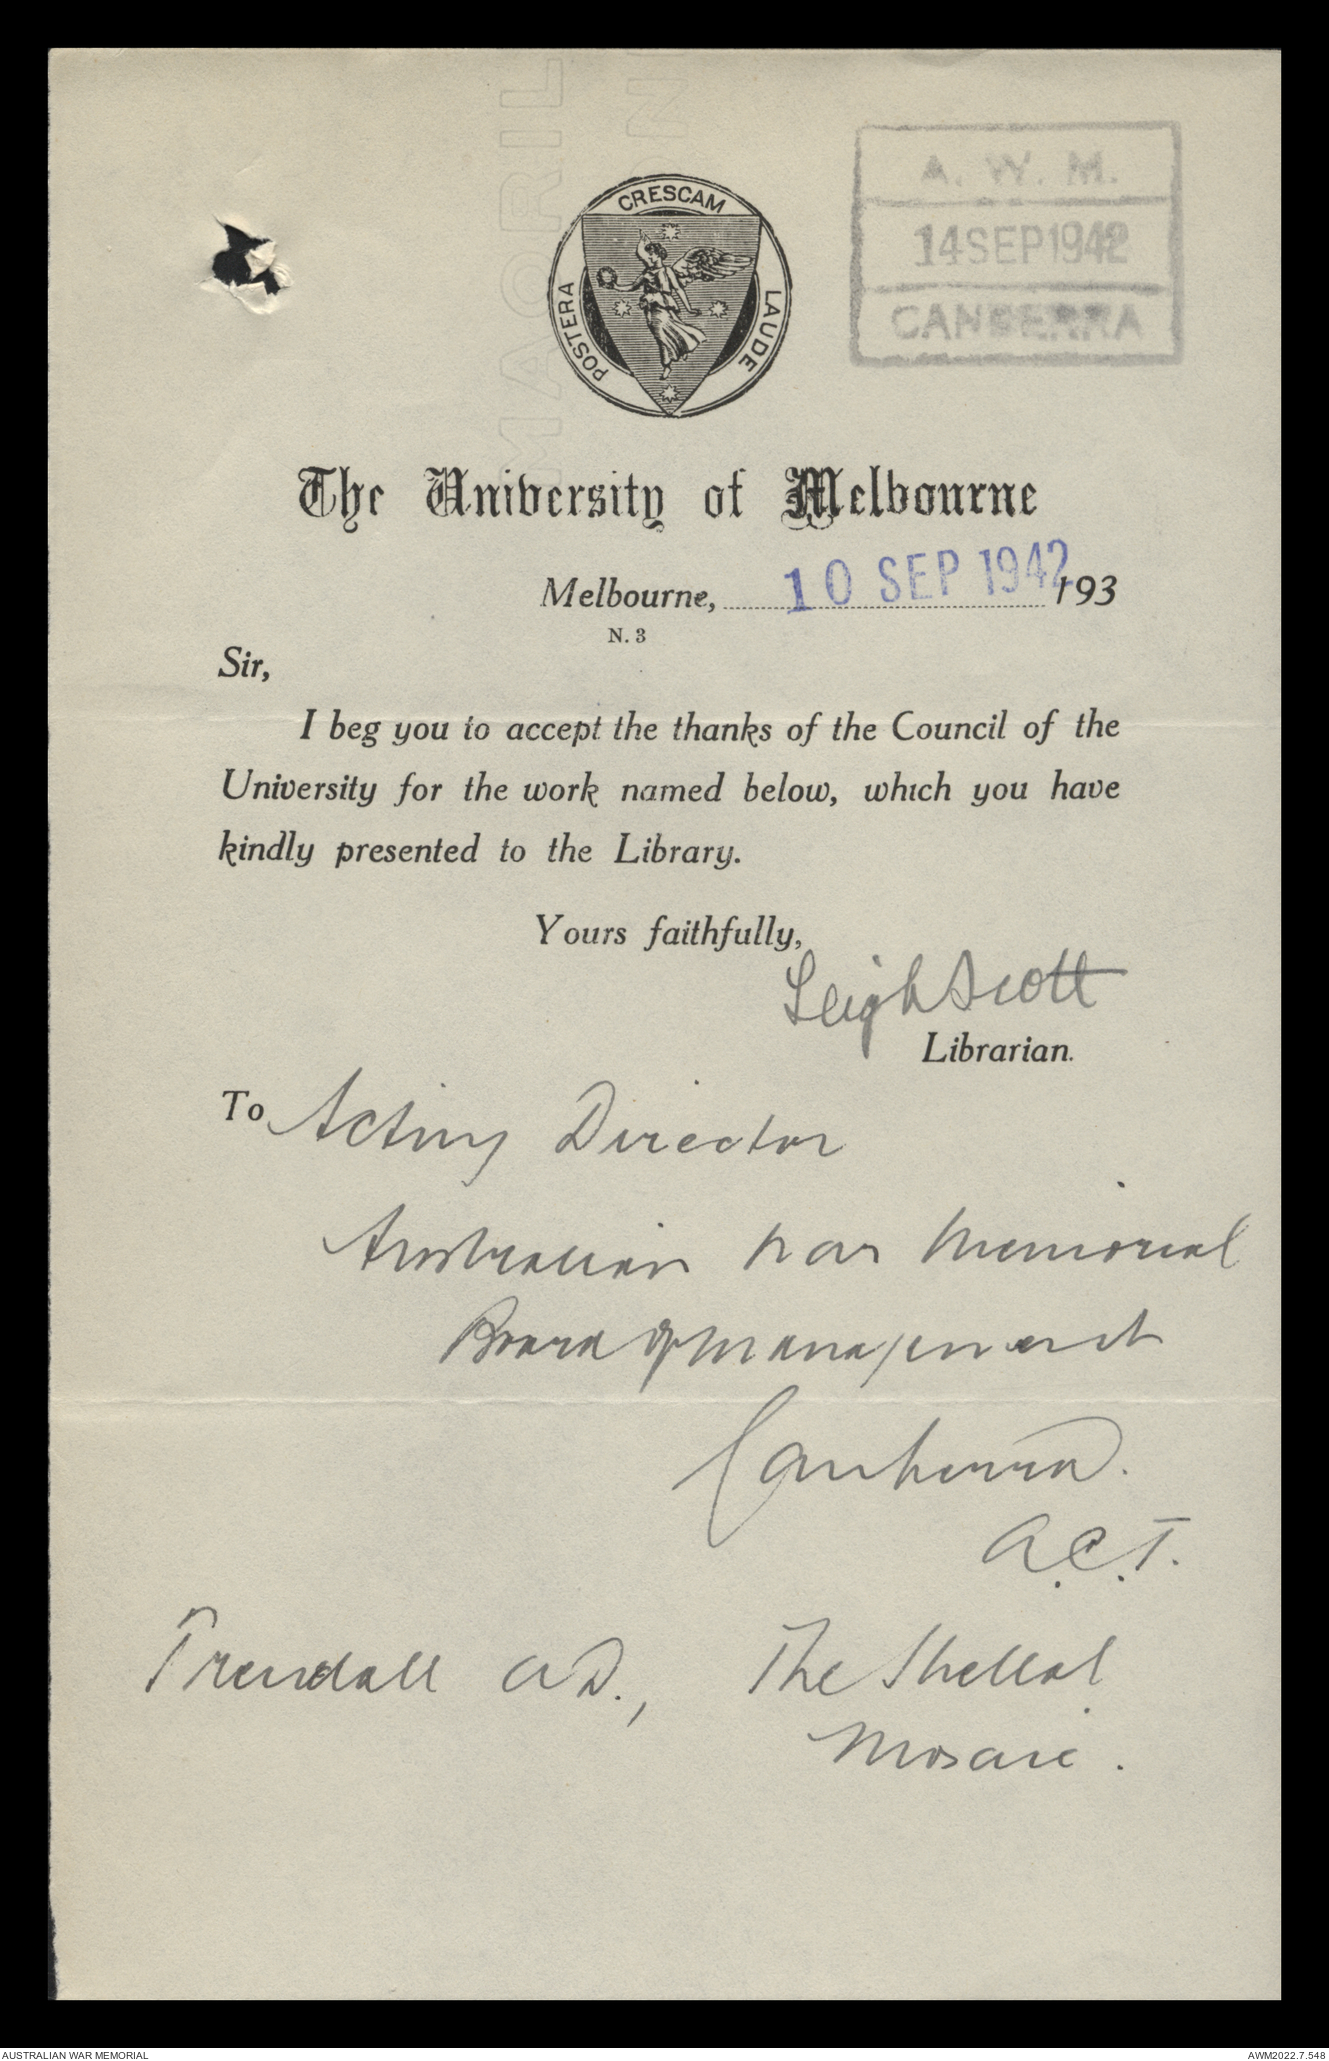 A. W. M.
14 SEP 1942
CANBERRA
POSTERA CRESCAM LAUDE
MAORIL
ON
The University of Melbourne
Melbourne, 10 SEP 1942 193
N. 3
Sir,
I beg you to accept the thanks of the Council of the
University for the work named below, which you have
kindly presented to the Library.
Yours faithfully,
Leigh Scott
Librarian.
To Acting Director
Australian War Memorial
Board of Management
Canberra.
A.C.T.
Trendall A D., The Shellal
Mosaic.
AUSTRALIAN WAR MEMORIAL
AWM2022.7.548